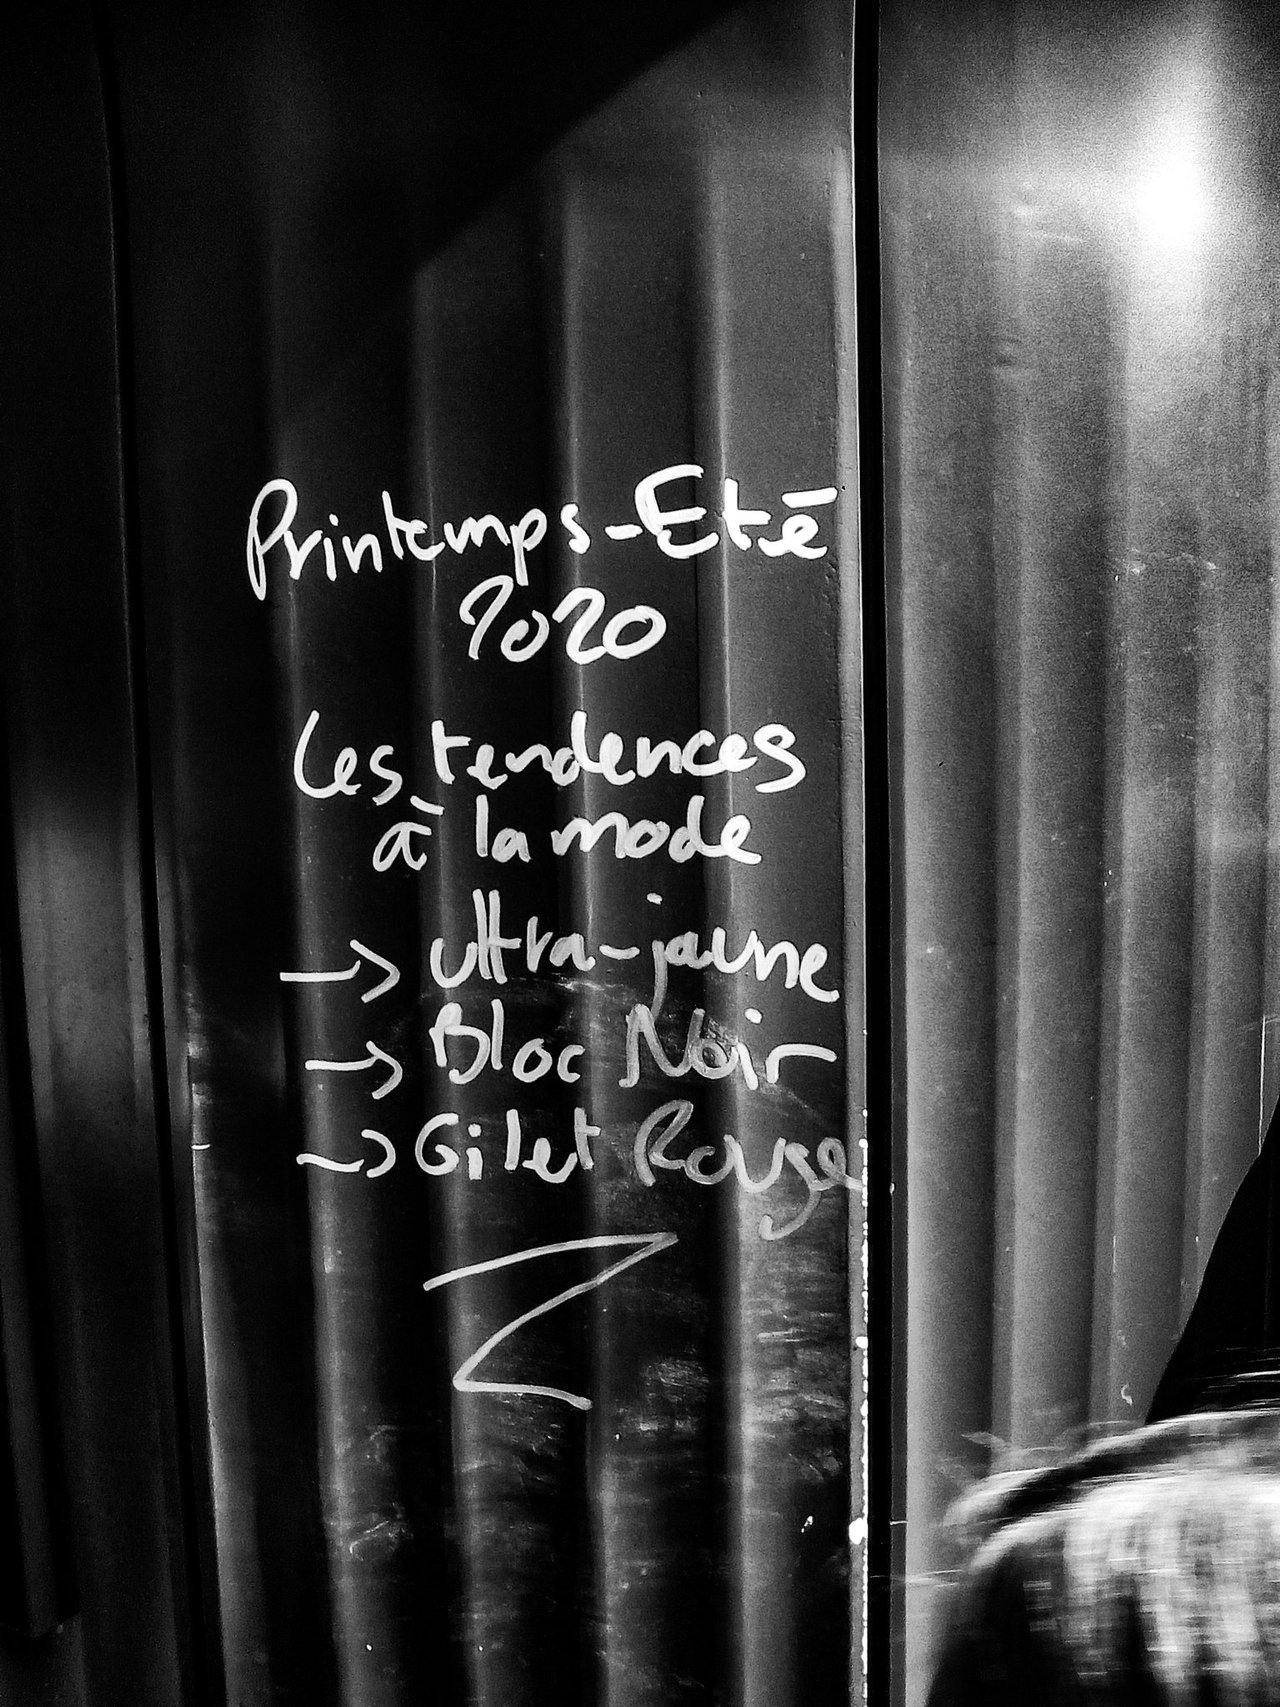 Printemps-Eté
2020
Les tendences
à la mode
→ ultra-jaune
→ Bloc Noir
→ Gilet Rouge